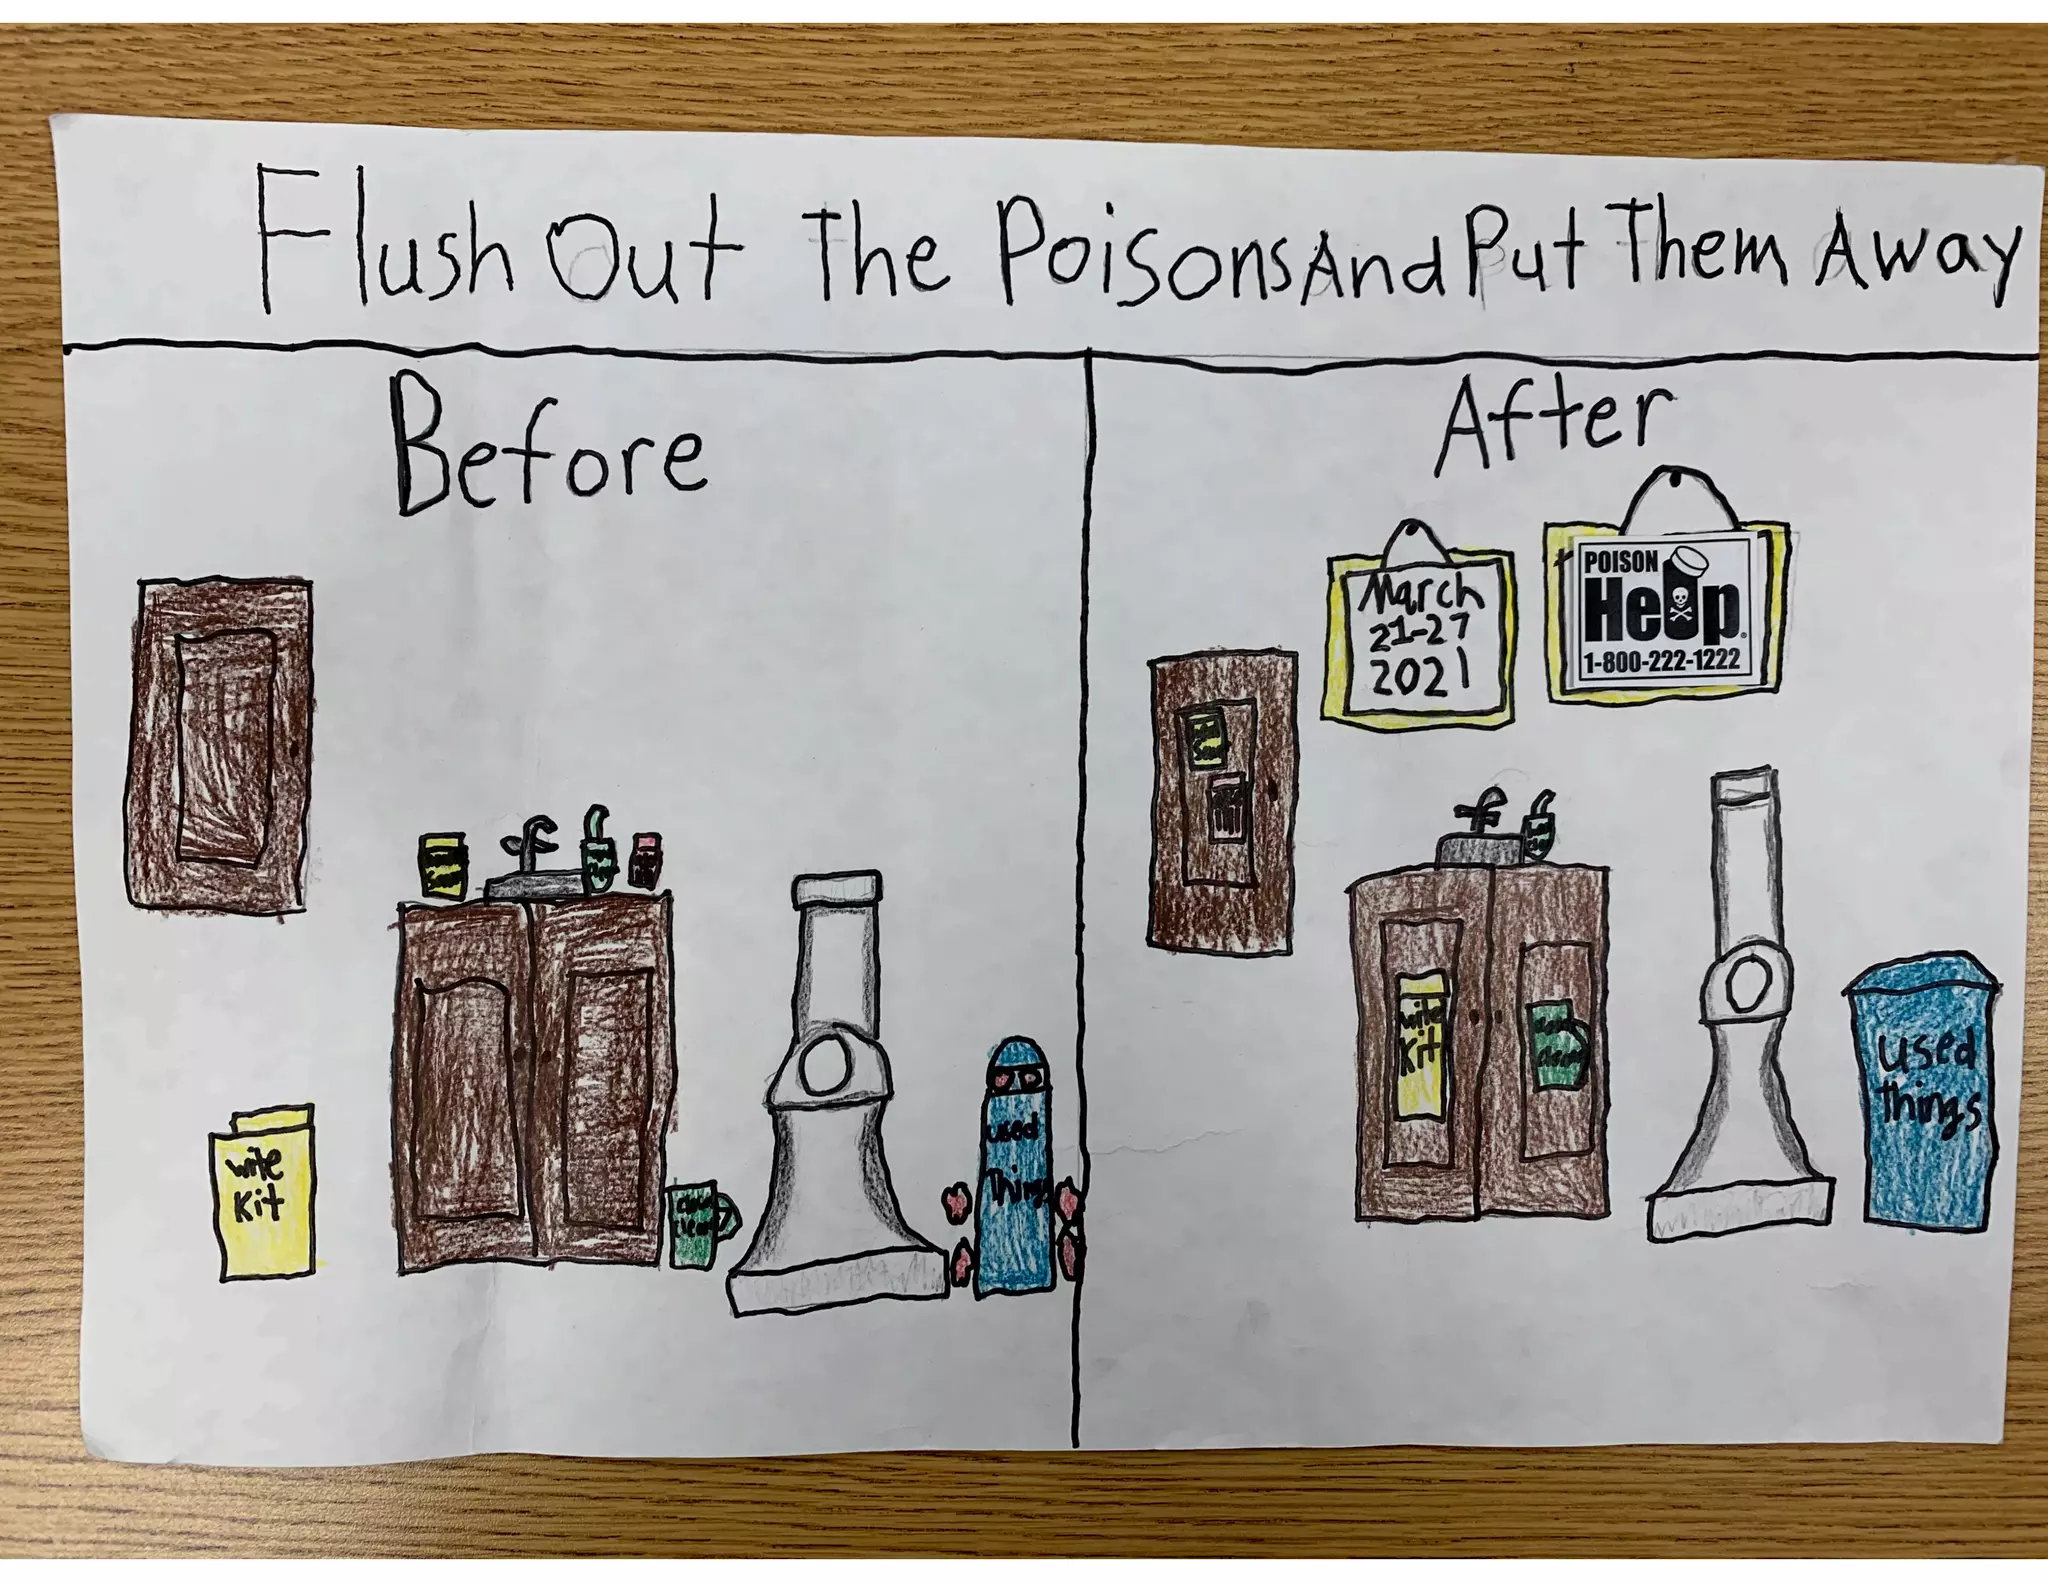 Flush Out The Poisons And Put Them Away
Before
After
March
21-27
2021
POISON
Help
1-800-222-1222
wite
Kit
used
Things
wite
Kit
used
things